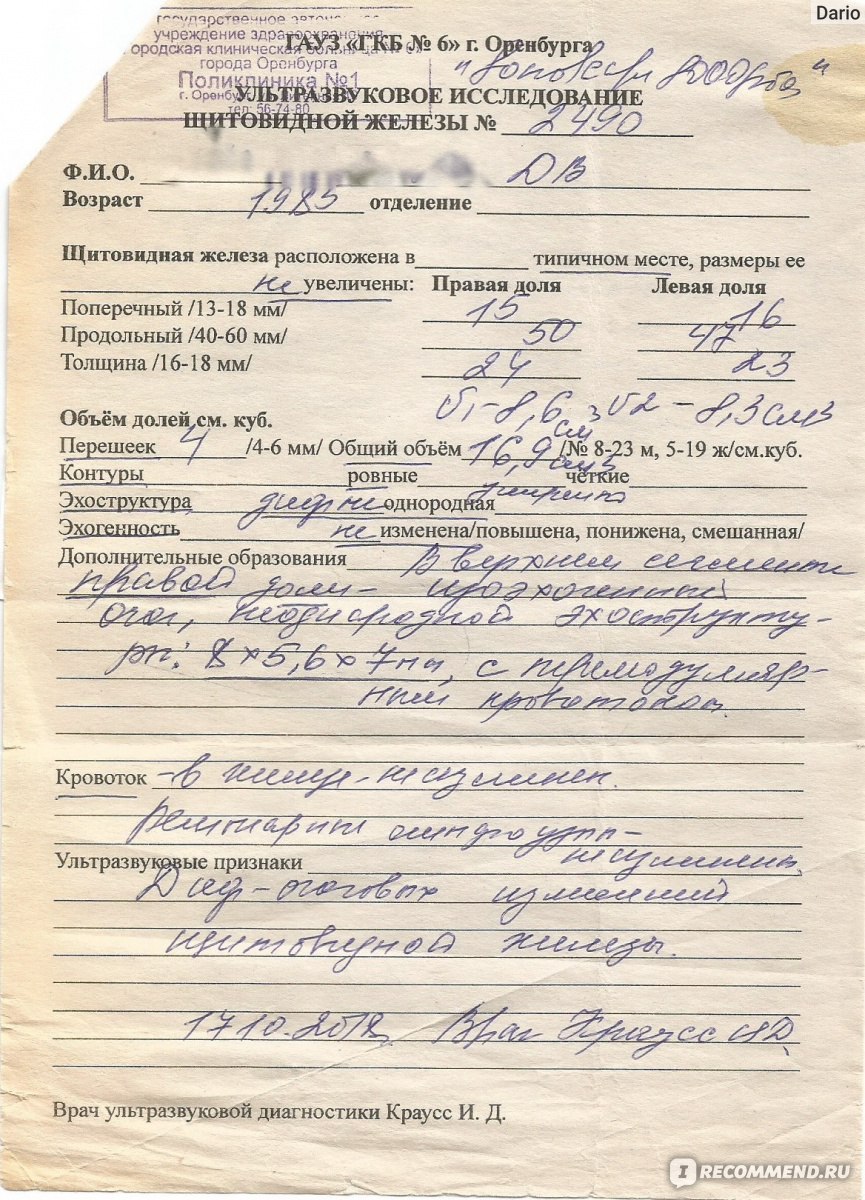 Dario
государственное автоно
учреждение здравоохранения
ородская клиническая больница № 6»
города Оренбурга
Поликлиника №1
г. Оренбург
тел: 56-74-80
ГАУЗ «ГКБ № 6» г. Оренбурга
УЛЬТРАЗВУКОВОЕ ИССЛЕДОВАНИЕ
ЩИТОВИДНОЙ ЖЕЛЕЗЫ № 2490
Ф.И.О. ДВ
Возраст 1985 отделение
Щитовидная железа расположена в типичном месте, размеры ее
не увеличены: Правая доля Левая доля
Поперечный /13-18 мм/ 15 16
Продольный /40-60 мм/ 50 47
Толщина /16-18 мм/ 24 23
Объём долей см. куб. 8,6 см3 8,3 см3
Перешеек 4 /4-6 мм/ Общий объём 16,9 см3 /№ 8-23 м, 5-19 ж/см.куб.
Контуры ровные чёткие
Эхоструктура диф не однородная
Эхогенность не изменена/повышена, понижена, смешанная/
Дополнительные образования В верхнем сегменте
правой доли - изоэхогенный
очаг, неоднородной эхострукту-
ры: 8х5,6х7мм, с перинодуляр-
ным кровотоком
Кровоток - в железе - не усилен.
Регионарные лимфоузлы -
не увеличены
Ультразвуковые признаки
Диф-очаговых изменений
щитовидной железы.
17.10.2018 Врач Краусс ИД
Врач ультразвуковой диагностики Краусс И. Д.
IRECOMMEND.RU